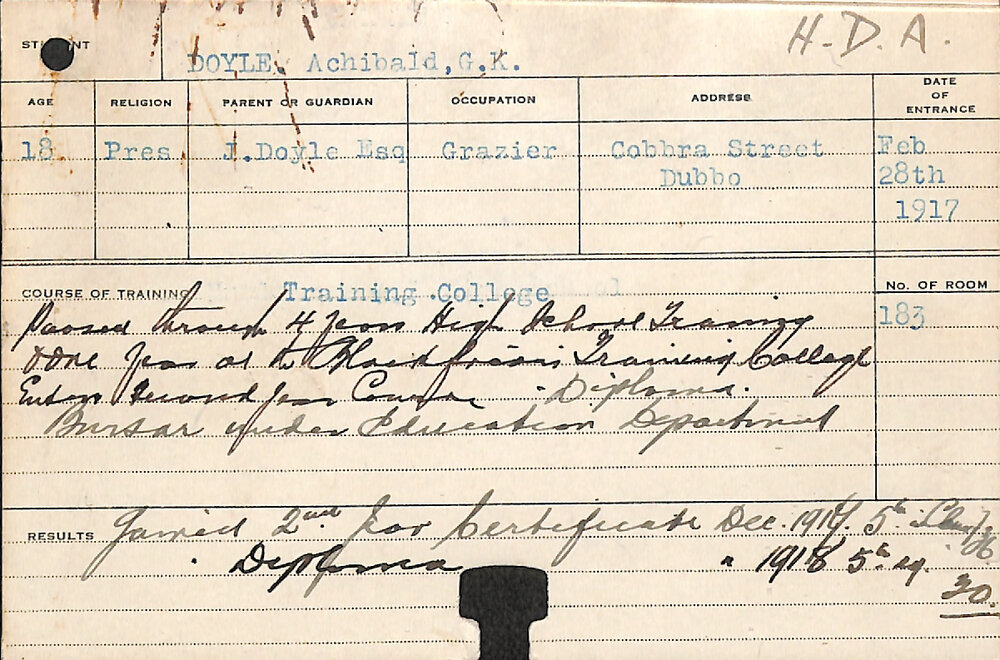 H.D.A.
STUDENT
DOYLE, Achibald,G.K.
AGE RELIGION PARENT OR GUARDIAN OCCUPATION ADDRESS DATE OF ENTRANCE
18 Pres J.Doyle Esq Grazier Cobbra Street Feb
Dubbo 28th
1917
COURSE OF TRAINING Training College No. OF ROOM
Passed through 4 years High School Training 183
& one year at the Blackfriars Training College
Enters Second Year Course - Diploma.
Bursar under Education Department
RESULTS Gained 2nd Year Certificate Dec. 1917. 5th
" Diploma " 1918 5th eq.
20.